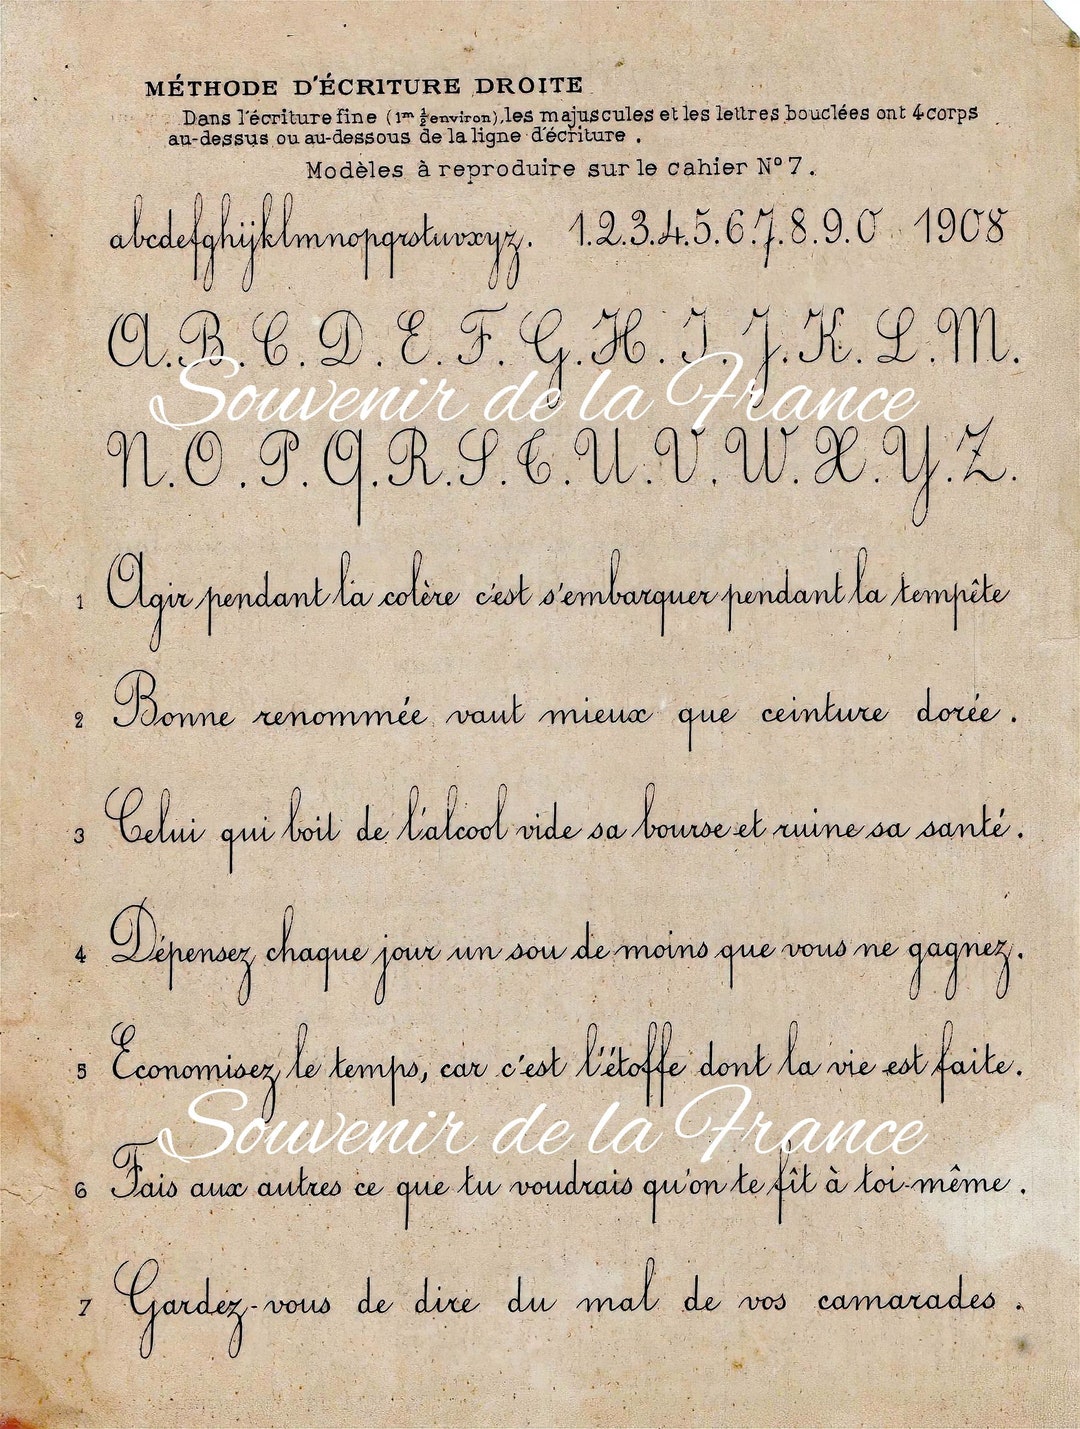 MÉTHODE D'ÉCRITURE DROITE
Dans l'écriture fine (1ᵐᵐ ½ environ), les majuscules et les lettres bouclées ont 4 corps
au-dessus ou au-dessous de la ligne d'écriture .
Modèles à reproduire sur le cahier Nº 7 .
abcdefghijklmnopqrstuvxyz. 1.2.3.4.5.6.7.8.9.0 1908
A.B.C.D.E.F.G.H.I.J.K.L.M.
Souvenir de la France
N.O.P.Q.R.S.T.U.V.W.X.Y.Z.
1 Agir pendant la colère c'est s'embarquer pendant la tempête
2 Bonne renommée vaut mieux que ceinture dorée .
3 Celui qui boit de l'alcool vide sa bourse et ruine sa santé .
4 Dépensez chaque jour un sou de moins que vous ne gagnez.
5 Économisez le temps, car c'est l'étoffe dont la vie est faite.
Souvenir de la France
6 Fais aux autres ce que tu voudrais qu'on te fît à toi-même .
7 Gardez-vous de dire du mal de vos camarades .